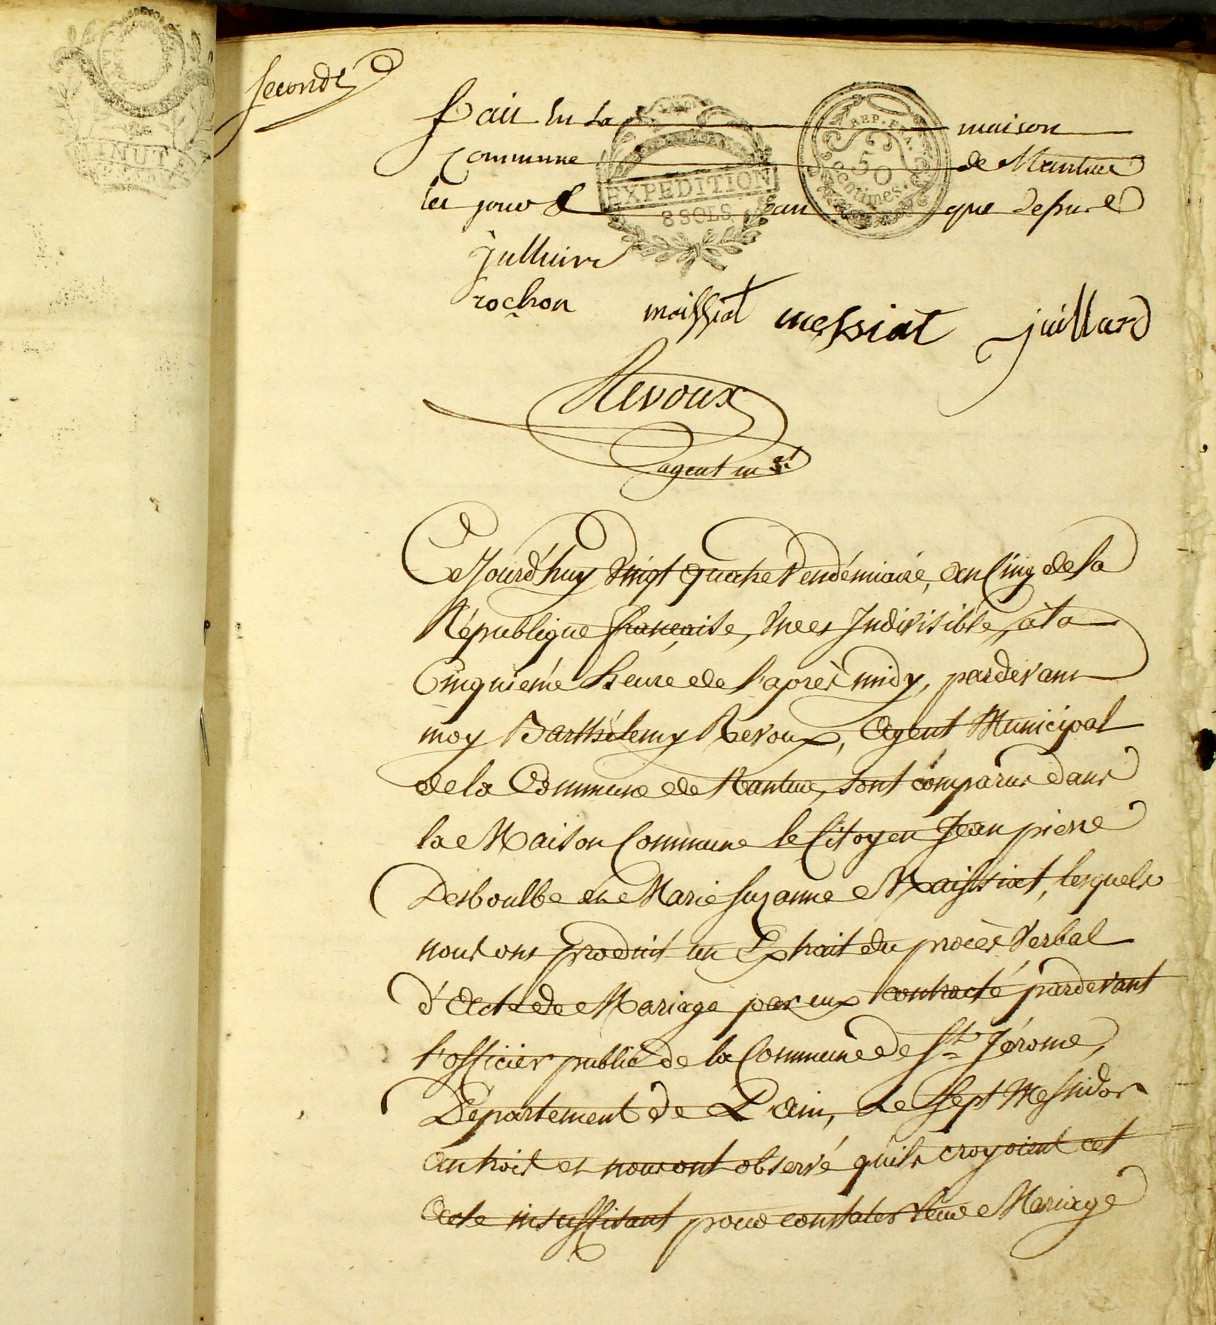 MINUTE
seconde
fait en la maison
Commune de Nantua
les jour & an que dessus
EXPEDITION
8 SOLS
REP. FRA.
50
Centimes.
Julliard
rochon maissiat messiat juillard
Revoux
agent m.al
Cejourd'huy Vingt quatre Vendémiaire, an Cinq de la
République française, Une et Indivisible, à la
Cinquième heure de l'après midy, pardevant
moy Barthélemy Revoux, Agent Municipal
de la Commune de Nantua, sont comparus dans
la Maison Commune le Citoyen Jean pierre
Desboulbe et Marie Suzanne Maissiat, lesquels
nous ont produit un Extrait du procès Verbal
d'Acte de Mariage par eux contracté pardevant
l'officier public de la Commune de St. Jérome,
Département de L'ain, Le Sept Messidor
an trois et nous ont observé qu'ils croyoient cet
Acte insuffisant pour constater leur Mariage